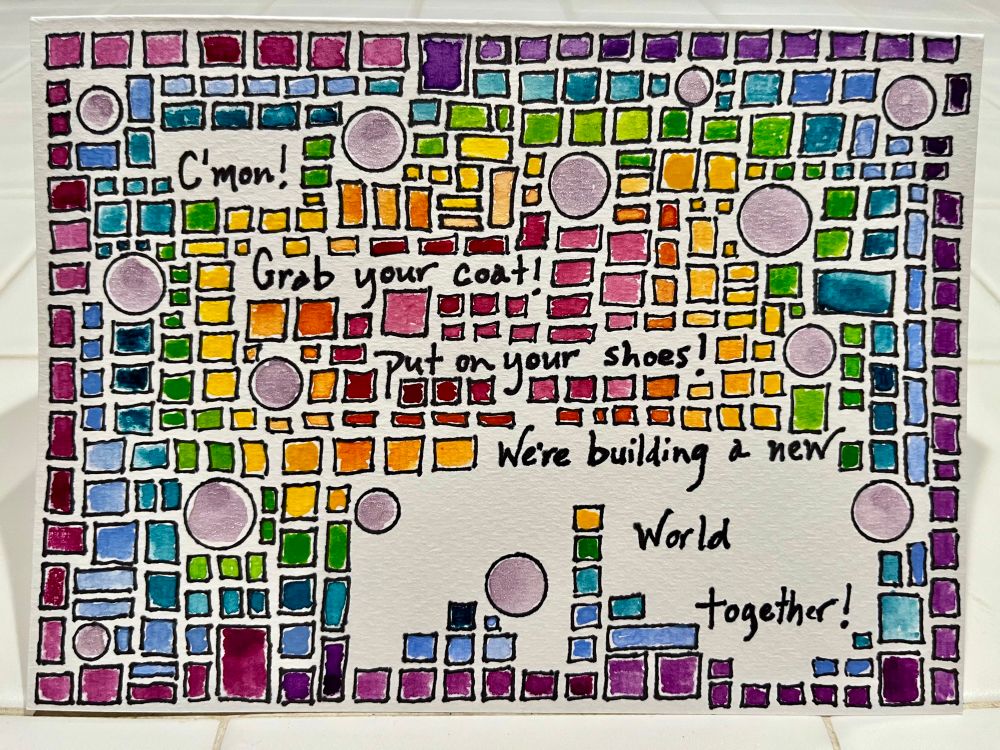 C'mon!
Grab your coat!
Put on your shoes!
We're building a new
World
together!